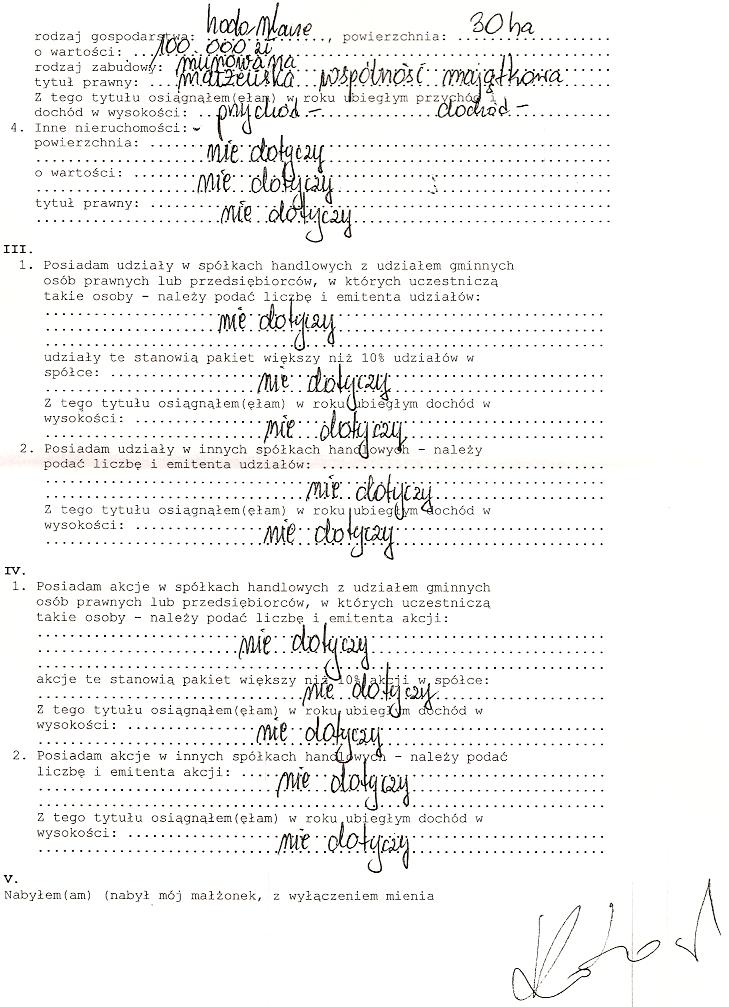 rodzaj gospodarstwa: hodowlane, powierzchnia: 30 ha
o wartości: 100.000 zł
rodzaj zabudowy: murowana
tytuł prawny: małżeńska wspólność majątkowa
Z tego tytułu osiągnąłem(ęłam) w roku ubiegłym przychód i
dochód w wysokości: przychód - dochód -
4. Inne nieruchomości: -
powierzchnia:
nie dotyczy
o wartości:
nie dotyczy
tytuł prawny:
nie dotyczy
III.
1. Posiadam udziały w spółkach handlowych z udziałem gminnych
osób prawnych lub przedsiębiorców, w których uczestniczą
takie osoby - należy podać liczbę i emitenta udziałów:
nie dotyczy
udziały te stanowią pakiet większy niż 10% udziałów w
spółce:
nie dotyczy
Z tego tytułu osiągnąłem(ęłam) w roku ubiegłym dochód w
wysokości:
nie dotyczy
2. Posiadam udziały w innych spółkach handlowych - należy
podać liczbę i emitenta udziałów:
nie dotyczy
Z tego tytułu osiągnąłem(ęłam) w roku ubiegłym dochód w
wysokości:
nie dotyczy
IV.
1. Posiadam akcje w spółkach handlowych z udziałem gminnych
osób prawnych lub przedsiębiorców, w których uczestniczą
takie osoby - należy podać liczbę i emitenta akcji:
nie dotyczy
akcje te stanowią pakiet większy niż 10% akcji w spółce:
nie dotyczy
Z tego tytułu osiągnąłem(ęłam) w roku ubiegłym dochód w
wysokości:
nie dotyczy
2. Posiadam akcje w innych spółkach handlowych - należy podać
liczbę i emitenta akcji:
nie dotyczy
Z tego tytułu osiągnąłem(ęłam) w roku ubiegłym dochód w
wysokości:
nie dotyczy
V.
Nabyłem(am) (nabył mój małżonek, z wyłączeniem mienia